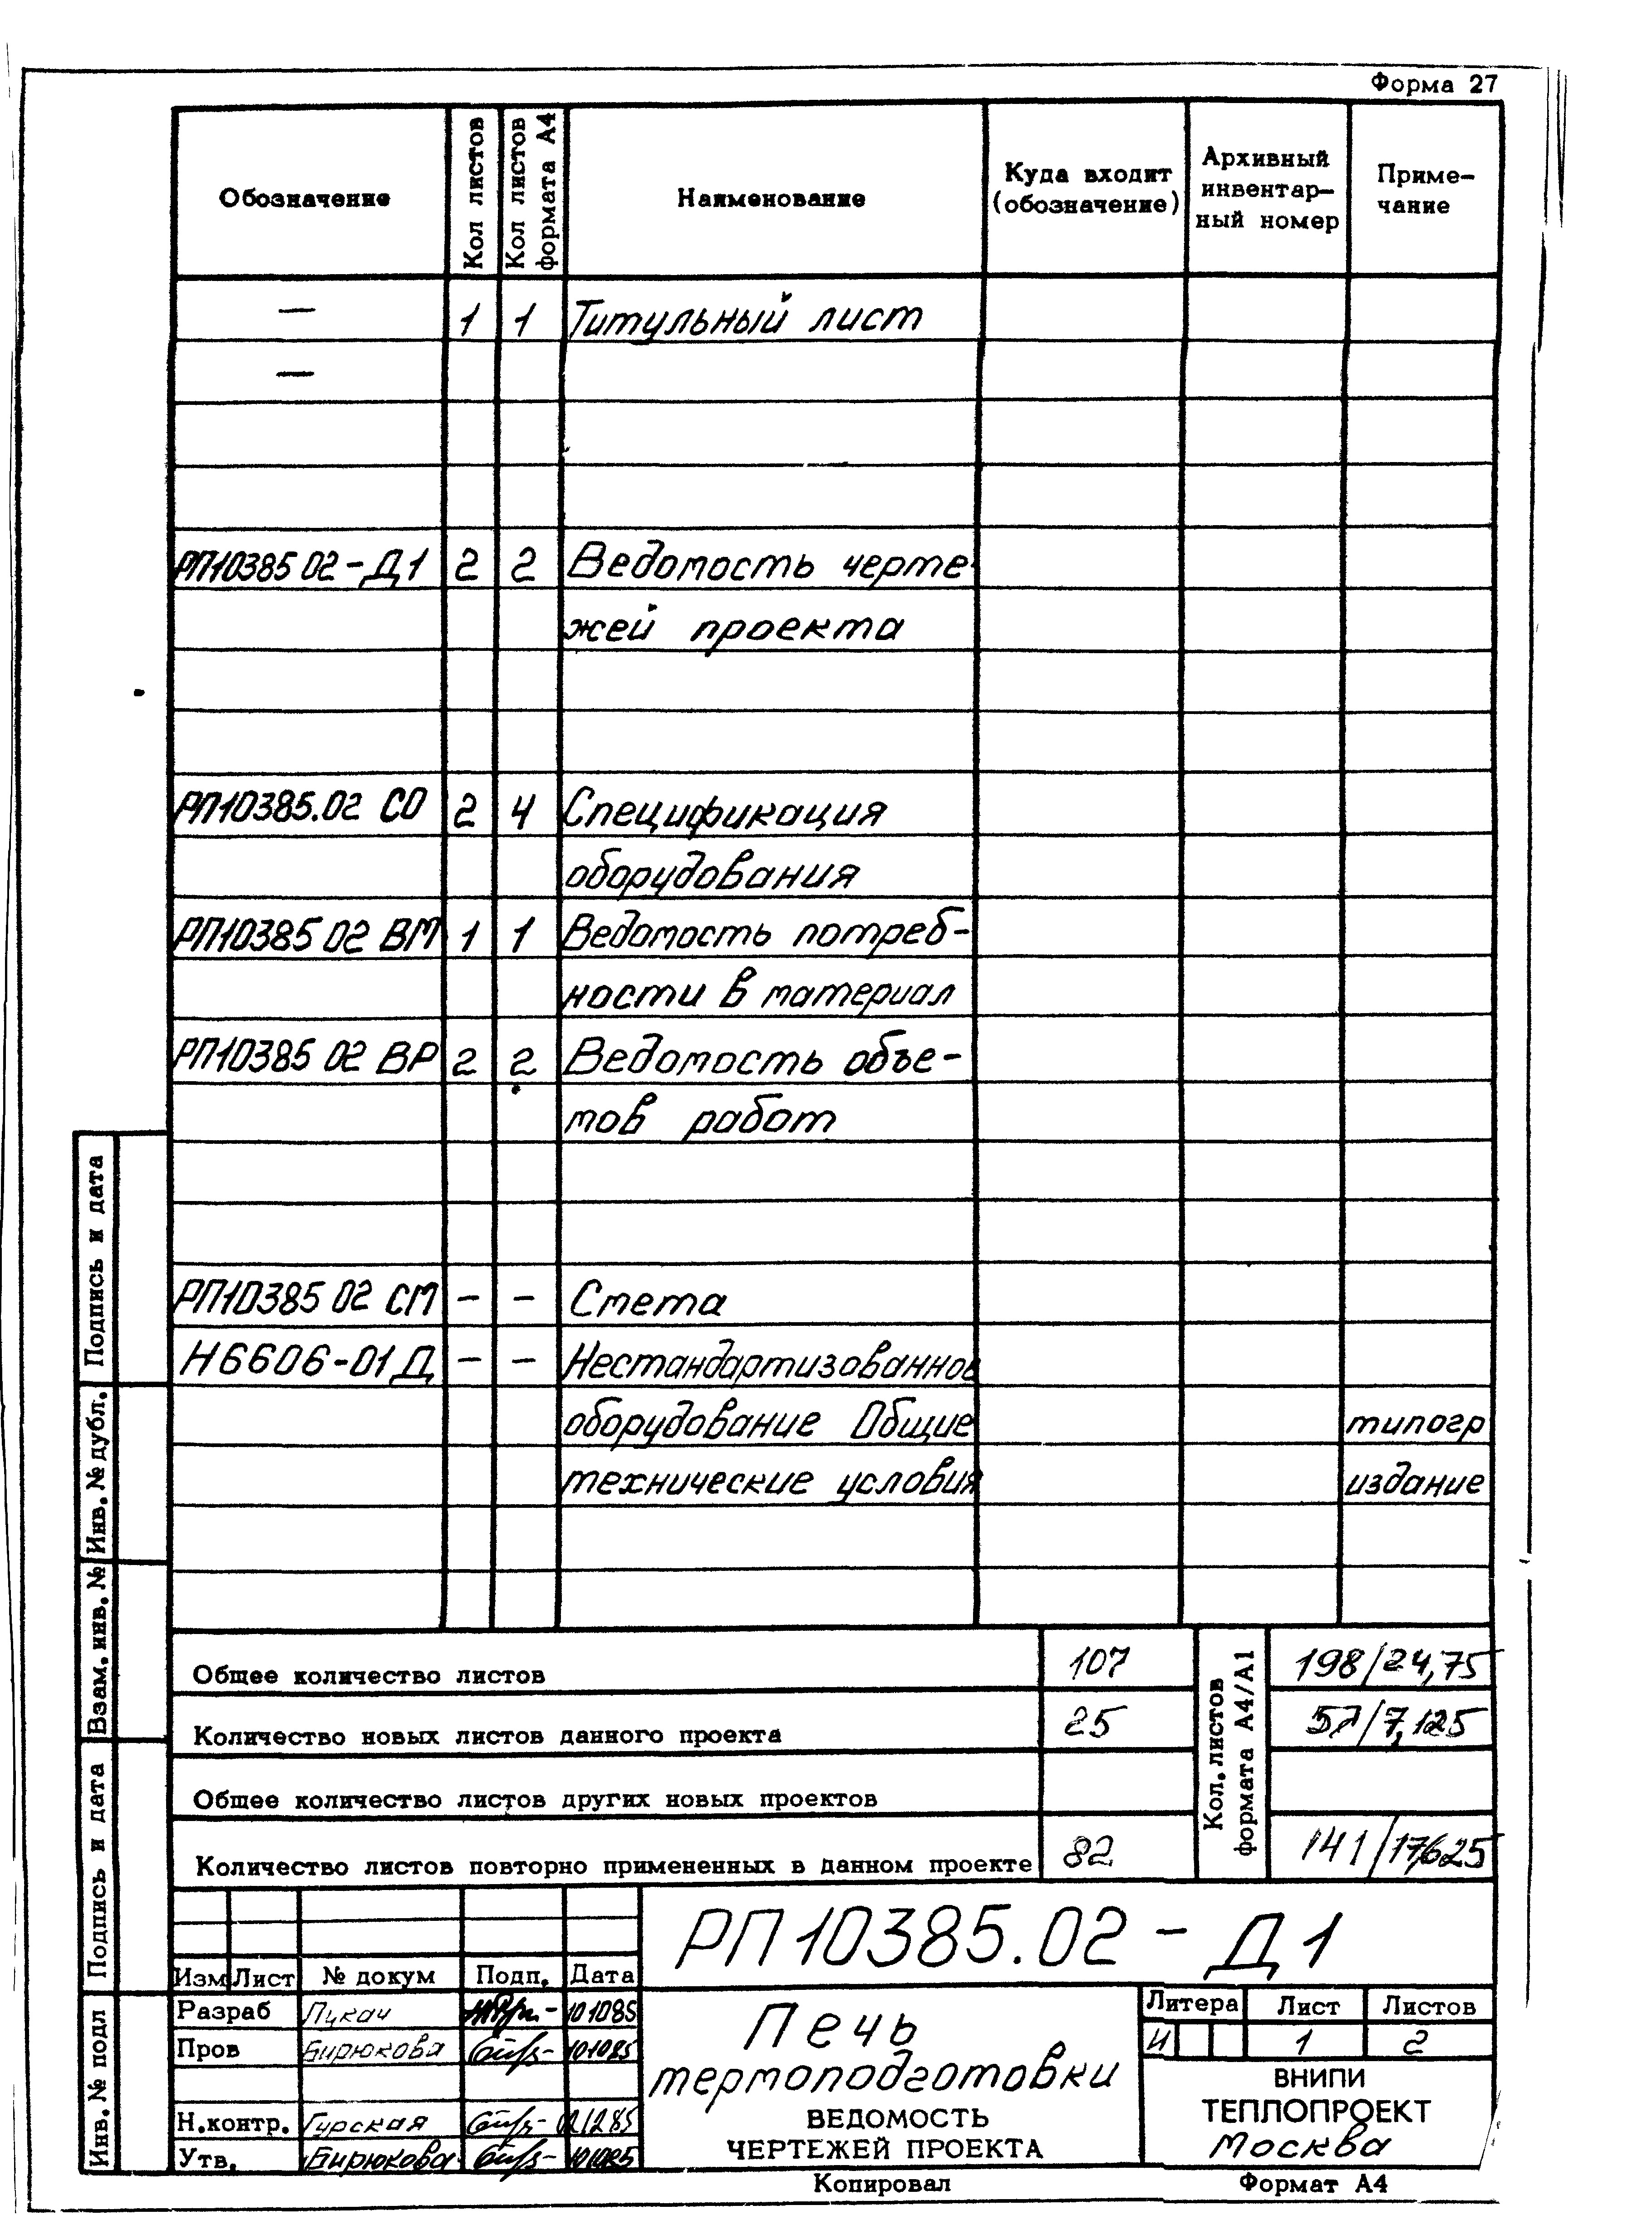 Форма 27
Обозначение
Кол листов
Кол листов
формата А4
Наименование
Куда входит
(обозначение)
Архивный
инвентар-
ный номер
Приме-
чание
— 1 1 Титульный лист
—
РП10385 02-Д1 2 2 Ведомость черте-
жей проекта
РП10385.02 СО 2 4 Спецификация
оборудования
РП10385 02 ВМ 1 1 Ведомость потреб-
ности в материал
РП10385 02 ВР 2 2 Ведомость объе-
мов работ
РП10385 02 СМ - - Смета
Н6606-01Д - - Нестандартизованное
оборудование Общие типогр
технические условия издание
Общее количество листов 107 198/24,75
Количество новых листов данного проекта 25 57/7,125
Общее количество листов других новых проектов
Количество листов повторно примененных в данном проекте 82 141/17,625
Кол. листов
формата А4/А1
Подпись и дата
Инв. № дубл.
Взам. инв. №
Подпись и дата
Инв. № подл
РП10385.02 - Д1
Изм Лист № докум Подп. Дата
Разраб Пукач 101085
Пров Бирюкова 101085
Н.контр. Гурская 021285
Утв. Бирюкова 101085
Печь
термоподготовки
ВЕДОМОСТЬ
ЧЕРТЕЖЕЙ ПРОЕКТА
Литера Лист Листов
И 1 2
ВНИПИ
ТЕПЛОПРОЕКТ
Москва
Копировал Формат А4